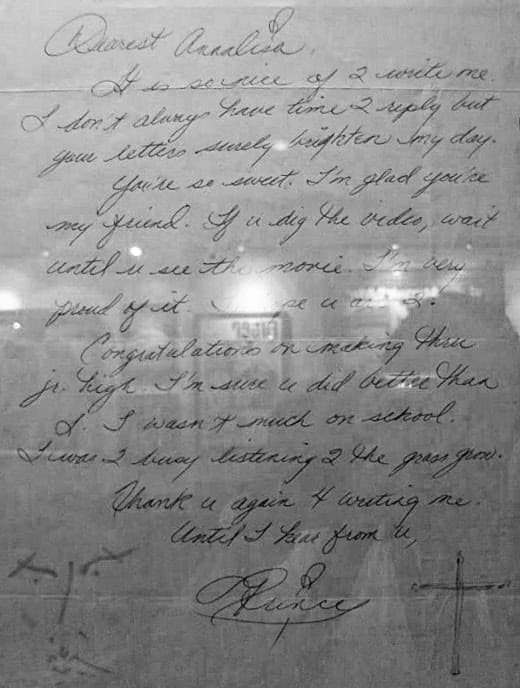 Dearest Annalisa,
It is so nice of 2 write me.
I don't always have time 2 reply but
your letters surely brighten my day.
You're so sweet. I'm glad you're
my friend. If u dig the video, wait
until u see the movie. I'm very
proud of it. u 2.
Congratulations on making thru
jr. high I'm sure u did better than
I. I wasn't much on school.
I was 2 busy listening 2 the grass grow.
Thank u again 4 writing me.
Until I hear from u,
Prince